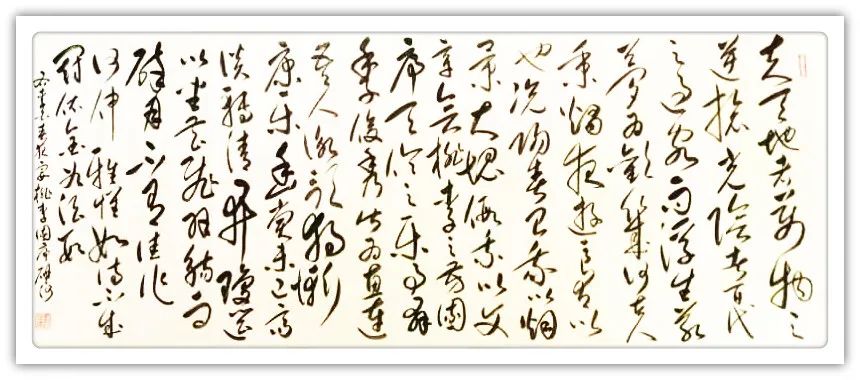 夫天地者萬物之
逆旅光陰者百代
之過客而浮生若
夢為歡幾何古人
秉燭夜遊良有以
也況陽春召我以烟
景大塊假我以文
章會桃李之芳園
序天倫之樂事群
季俊秀皆為惠連
吾人詠歌獨慚
康樂幽賞未已高
談轉清開瓊筵
以坐花飛羽觴而
醉月不有佳作
何伸雅懷如詩不成
罰依金谷酒數
李白春夜宴桃李園序